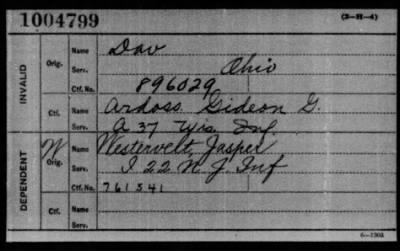 1004799
(3-H-4)
INVALID
Orig.
Name Dav
Serv. Ohio
Ctf. No. 896029
Ctf.
Name Ardoss Gideon G.
Serv. A 37 Wis. Inf.
DEPENDENT
W
Orig.
Name Westervelt, Jasper
Serv. I 22 N J. Inf
Ctf. No. 761541
Ctf.
Name
Serv.